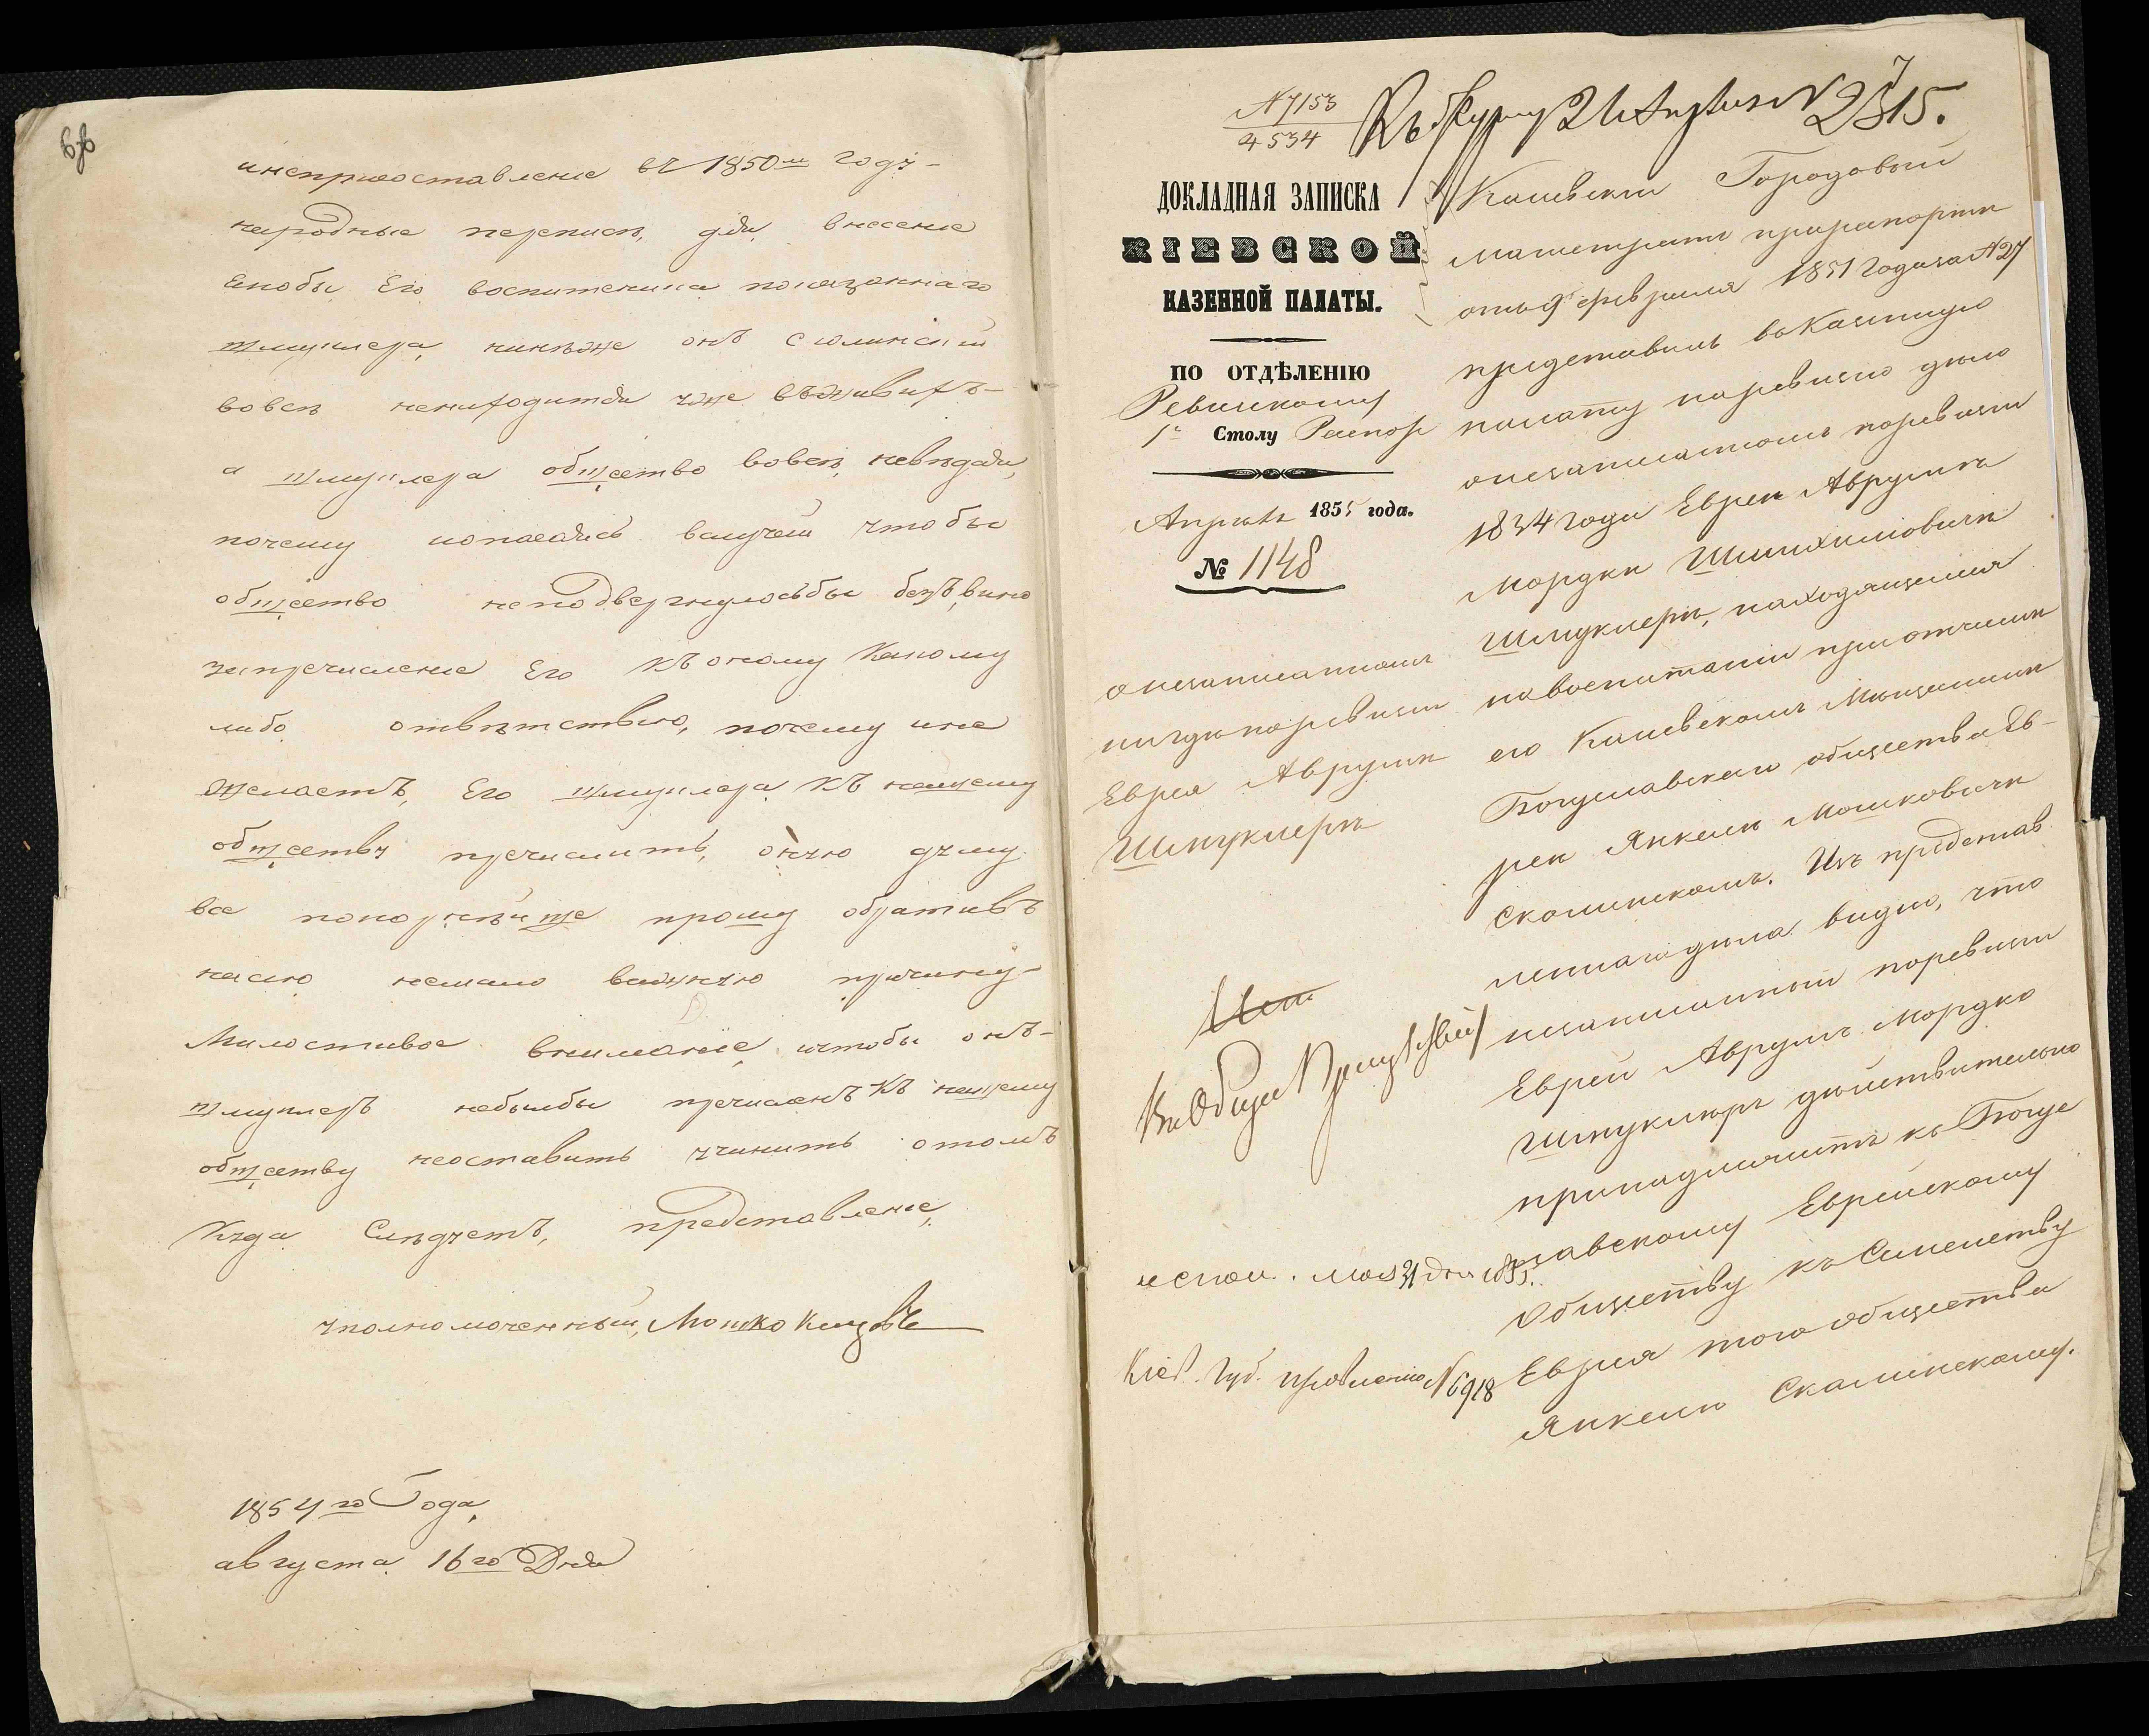 инепредоставление въ 1850м году-
народные переписи, для внесение
якобы Его воспитеника показаннаго
шмуклера, нинѣже онъ сколинский
вовсѣ ненаходитця уже вживихъ-
а шмуклера общество вовсѣ невидали,
почему
общество неподвергнулосьбы безъвино
запречисление Его къ оному Какому
либо отвѣтствию, почему ине
желаетъ, Его шмуклера къ нашему
обществу пречислить, оною думу
все покорнѣише прошу обративъ
насию немало важную причину-
Милостивое внимание, чтобы онъ-
шмуклеръ небылбы пречисленъ къ нашему
обществу неоставить учинить отомъ
Куда Слѣдуетъ, представление,
уполномоченный, Мошко
1854го Года,
августа 16го Дня
N 7153
4534
N 2315.
ДОКЛАДНАЯ ЗАПИСКА
КІЕВСКОЙ
КАЗЕННОЙ ПАЛАТЫ.
ПО ОТДѢЛЕНІЮ
Ревизскому
1е Столу Распор
Апрѣля 1855 года.
№ 1148
о незаписанномъ
нигдѣ по ревизіи
Еврея Аврумѣ
Шмуклерѣ
Въ Общее Присутствіе
испол. мая 31 дня 1855.
Кіев. Губ. правленію N 6918
Каневскій Городовый
Магистратъ при рапортѣ
отъ 9 февраля 1851 года за N 27
представилъ въ Казенную
палату поревизію дѣло
о незаписанномъ поревизіи
1834 года Евреѣ Аврумѣ
Мордкѣ Шмихилиовичѣ
Шмуклерѣ, находящемся
на воспитаніи при отчимѣ
его Каневскомъ Мѣщанинѣ
Богуславскаго общества Ев-
реѣ Янкелѣ Мошковичѣ
Сколинскомъ. Изъ представ
леннаго дѣла видно, что
незаписанный поревизіи
Еврей Аврумъ Мордко
Шмуклеръ дѣйствительно
принадлежитъ къ Богу
славскому Еврейскому
Обществу къ Семейству
Еврея того общества
Янкеля Сколинскому.